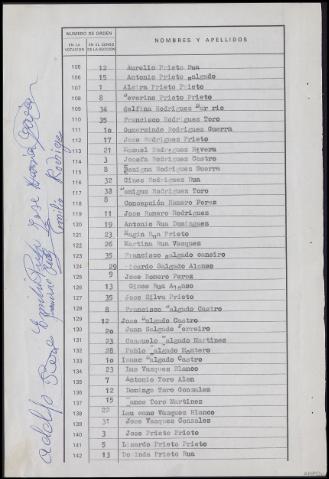 NUMERO DE ORDEN
NOMBRES Y APELLIDOS
EN LA VOTACION
EN EL CENSO DE LA SECCION
105 12 Aurelio Prieto Rua
106 15 Antonio Prieto salgado
107 1 Alsira Prieto Prieto
108 8 Severino Prieto Prieto
109 34 Delfina Rodrigues
110 35 Francisco Rodrigues Toro
111 10 Gumersindo Rodrigues Guerra
112 17 Jose Rodrigues Prieto
113 21 Manuel Rodrigues Rivera
114 3 Josefa Rodrigues Castro
115 8 Benigna Rodrigues Guerra
116 32 Gines Rodrigues Rua
117 38 Benigna Rodrigues Toro
118 8 Concepción Romero Perez
119 11 Jose Romero Rodrigues
120 19 Antonio Rua Domingues
121 23 Magin Rua Prieto
122 26 Martina Rua Vasques
123 35 Francisco salgado
124 29 Ricardo Salgado Alonso
125 9 Jose Romero Perez
126 13 Gines Rua
127 35 Jose Silva Prieto
129 8 Francisco Salgado Castro
130 12 Jose Salgado Castro
131 20 Juan Salgado Ferreiro
132 23 Consuelo Salgado Martines
132 28 Pablo Salgado Montero
133 10 Isaac Salgado Castro
134 23 Luis Vasques Blanco
135 7 Antonio Toro Alen
136 12 Domingo Toro Gonsales
137 15 Toro Martinez
138 22 Vasques Blanco
139 31 Jose Vasques Gonsales
140 3 Jose Prieto Prieto
141 5 Lisardo Prieto Prieto
142 13 Delinda Prieto Rua
Adolfo Rosa
Emilio Rodrigues
Jose Maria